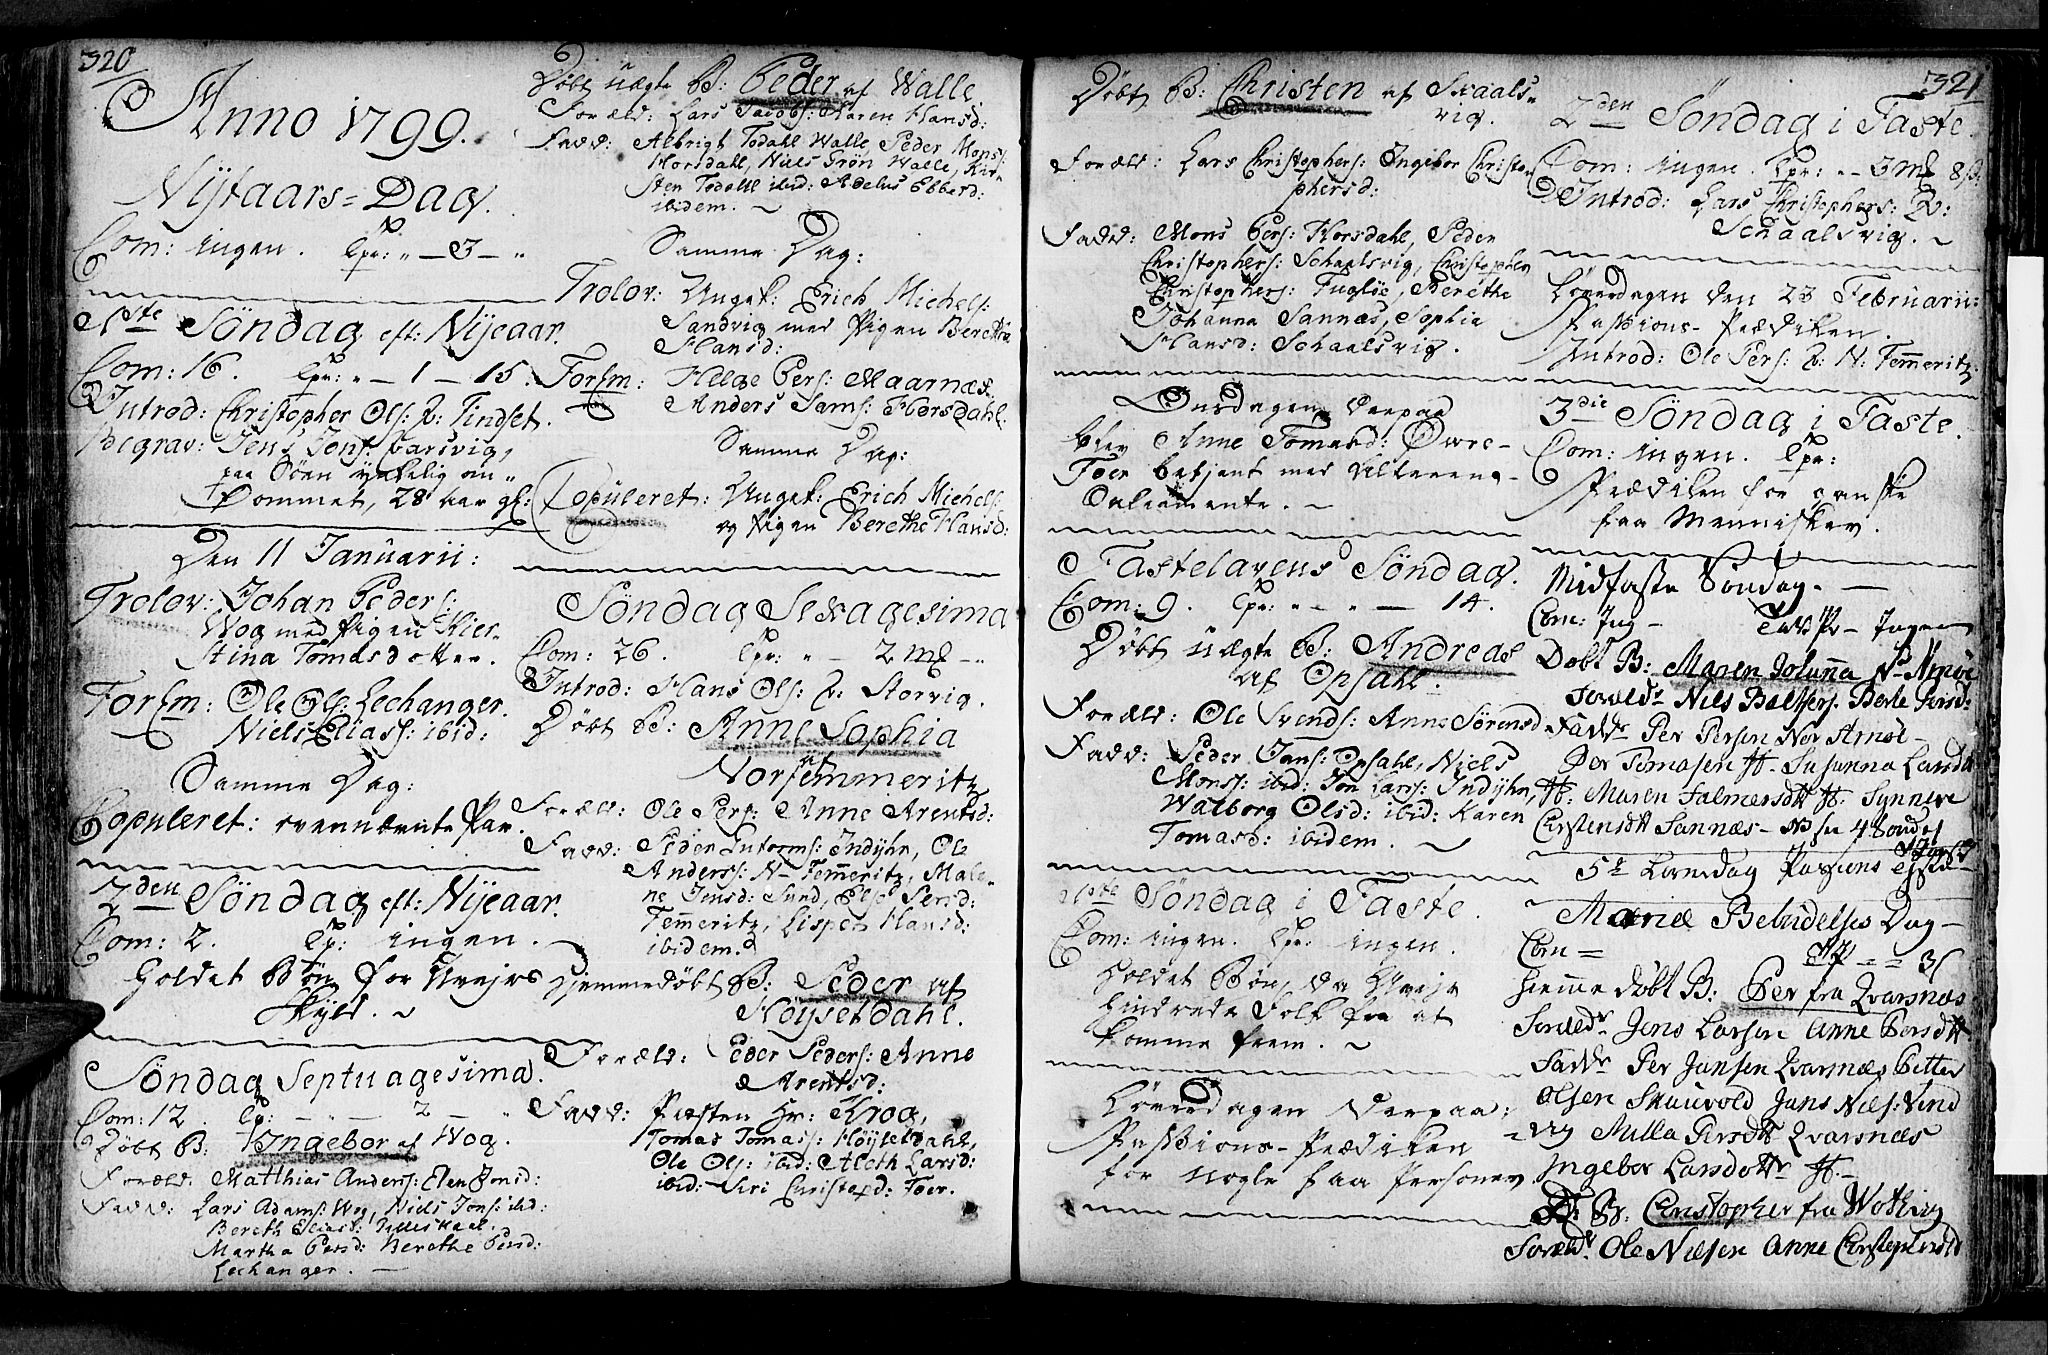 320
Anno 1799.
Nÿtaars=Dag.
Com: ingen. Cpr: „ — 3 — „
1ste Söndag eft: Nÿeaar.
Com: 16. Cpr: „ — 1 — 15.
Introd: Christopher Ols: Q: Tindset.
Begrav: Jens Jons:
paa Söen ynkelig om„
kommet, 28 aar gl:
Den 11 Januarii:
Trolov: Johan Peders:
Wog med Pigen Kier„
stina Tomasdotter.
Forlm: Ole Ols: Lechanger.
Niels Elias: ibid:
Samme Dag:
Copuleret: ovennævnte Par.
2den Söndag eft: Nÿeaar.
Com: 2. Cp: ingen.
Holdet Bøn for Uveirs
Skyld.
Söndag Septuagesima.
Com: 12. Cp: — — 2 — „
Døbt B: Ingebor af Wog.
Foræld: Matthias Anders: Elen Jonsd:
Fadd: Lars Adams: Wog, Niels Jons: ibid:
Bereth Eliasd:
Martha Persd: Berethe Persd:
Lechanger.
Døbt uægte B: Peder af Walle.
Foræld: Lars Jacobs: Karen Hansd:
Fadd: Albrigt Todahl Walle, Peder Mons:
Horsdahl, Niels Trön Walle, Kir„
sten Todahl ibid: Adelus Ebbesd:
ibidem.
Samme Dag:
Trolov: Ungk: Erich Michels:
Sandvig med Pigen Berethe
Hansd:
Forlm: Helge Pers: Maarnæs.
Anders Sams: Horsdahl.
Samme Dag:
Copuleret: Ungk: Erich Michels:
og Pigen Berethe Hansd:
Söndag Sexagesima
Com: 26. Cpr: „ — 2 mk — „
Introd: Hans Ols: Q: Storvig.
Døbt B: Anne Sophia
af
Norfemmeritz
Foræld: Ole Pers: Anne Arentsd:
Fadd: Peder Intorms: Indÿhr, Ole
Anders: N- Femeritz, Male„
ne Jensd: Sund, Else Persd:
Femeritz, Lispet Hansd:
ibidem.
Hjemmedøbt B: Peder af
Höÿsetdahl.
Foræld: Peder Peders: Anne
Arentsd:
Fadd: Præsten Hr: Krog,
Tomas Tomas: Höÿsetdahl,
Ole Ols: ibid: Aleth Larsd:
ibid: Siri Christopd: Foer.
321
Døbt B: Christen af Skaals„
vig.
Foræld: Lars Christophers: Ingebor Christo„
phersd:
Fadd: Mons Pers: Horsdahl, Peder
Christophers: Schaalsvig, Christopher
Christophers: Fugløe, Berethe
Johanna Sannæs, Sophia
Hansd: Schaalsvig.
Onsdagen derpaa
blev Anne Tomasd: Øvre-
Foer betjent med Alterens
Sakramente.
Fastelavens Söndag.
Com: 9. Cpr: „ — „ — 14.
Døbt uægte B: Andreas
af Opsahl.
Foræld: Ole Svends: Anne Sörensd
Fadd: Peder Jans: Opsahl, Niels
Mons: ibid: Jon Lars: Indÿhr,
Walborg Olsd: ibid: Karen
Tomasd: ibidem.
1ste Söndag i Faste.
Com: ingen. Cpr: ingen.
Holdet Bøn, da Uveir
hindrede Folk fra at
komme frem.
Løverdagen derpaa:
Passions-Prædiken
for nogle faa Personer
2den Söndag i Faste.
Com: ingen. Cpr: „ — 3 mk 8 s:
Introd: Lars Christophers: Q:
Schaalsvig.
Løverdagen den 23 Februarii:
Passions-Prædiken.
Introd: Ole Pers: Q: N: Femeritz.
3die Söndag i Faste.
Com: ingen. Cpr:
Prædiken for ganske
faa Mennisker.
Midfaste Sondag. —
Com: Ing — Tavl P — Ingen
Døbt B: Maren Johanna N- Arnöe
Foreldr Niels Baltzers: Berte Persd:
Faddr Per Persen Nor Arnöe
Per Tomasen H. Susanna Larsdtt
H: Maren Falmersdtt H. Synneve
Christensdtt Sannæs —
5t Løverdag Passions
Mariæ Bebudelses Dag —
Com = — = 3
Hiemme døbt B: Per fra Qvarsnæs
Foreldr Jens Larsen Anne Persdtt
Faddr Per Jansen Qvarsnæs Petter
Olsen Skauvold Jens Niels: Vind
vig Milla Persdtt Qvarsnæs
Ingebor Larsdottr H. —
D: B: Christopher fra Wething
Foreldr Ole Nielsen Anne Christophersdtt